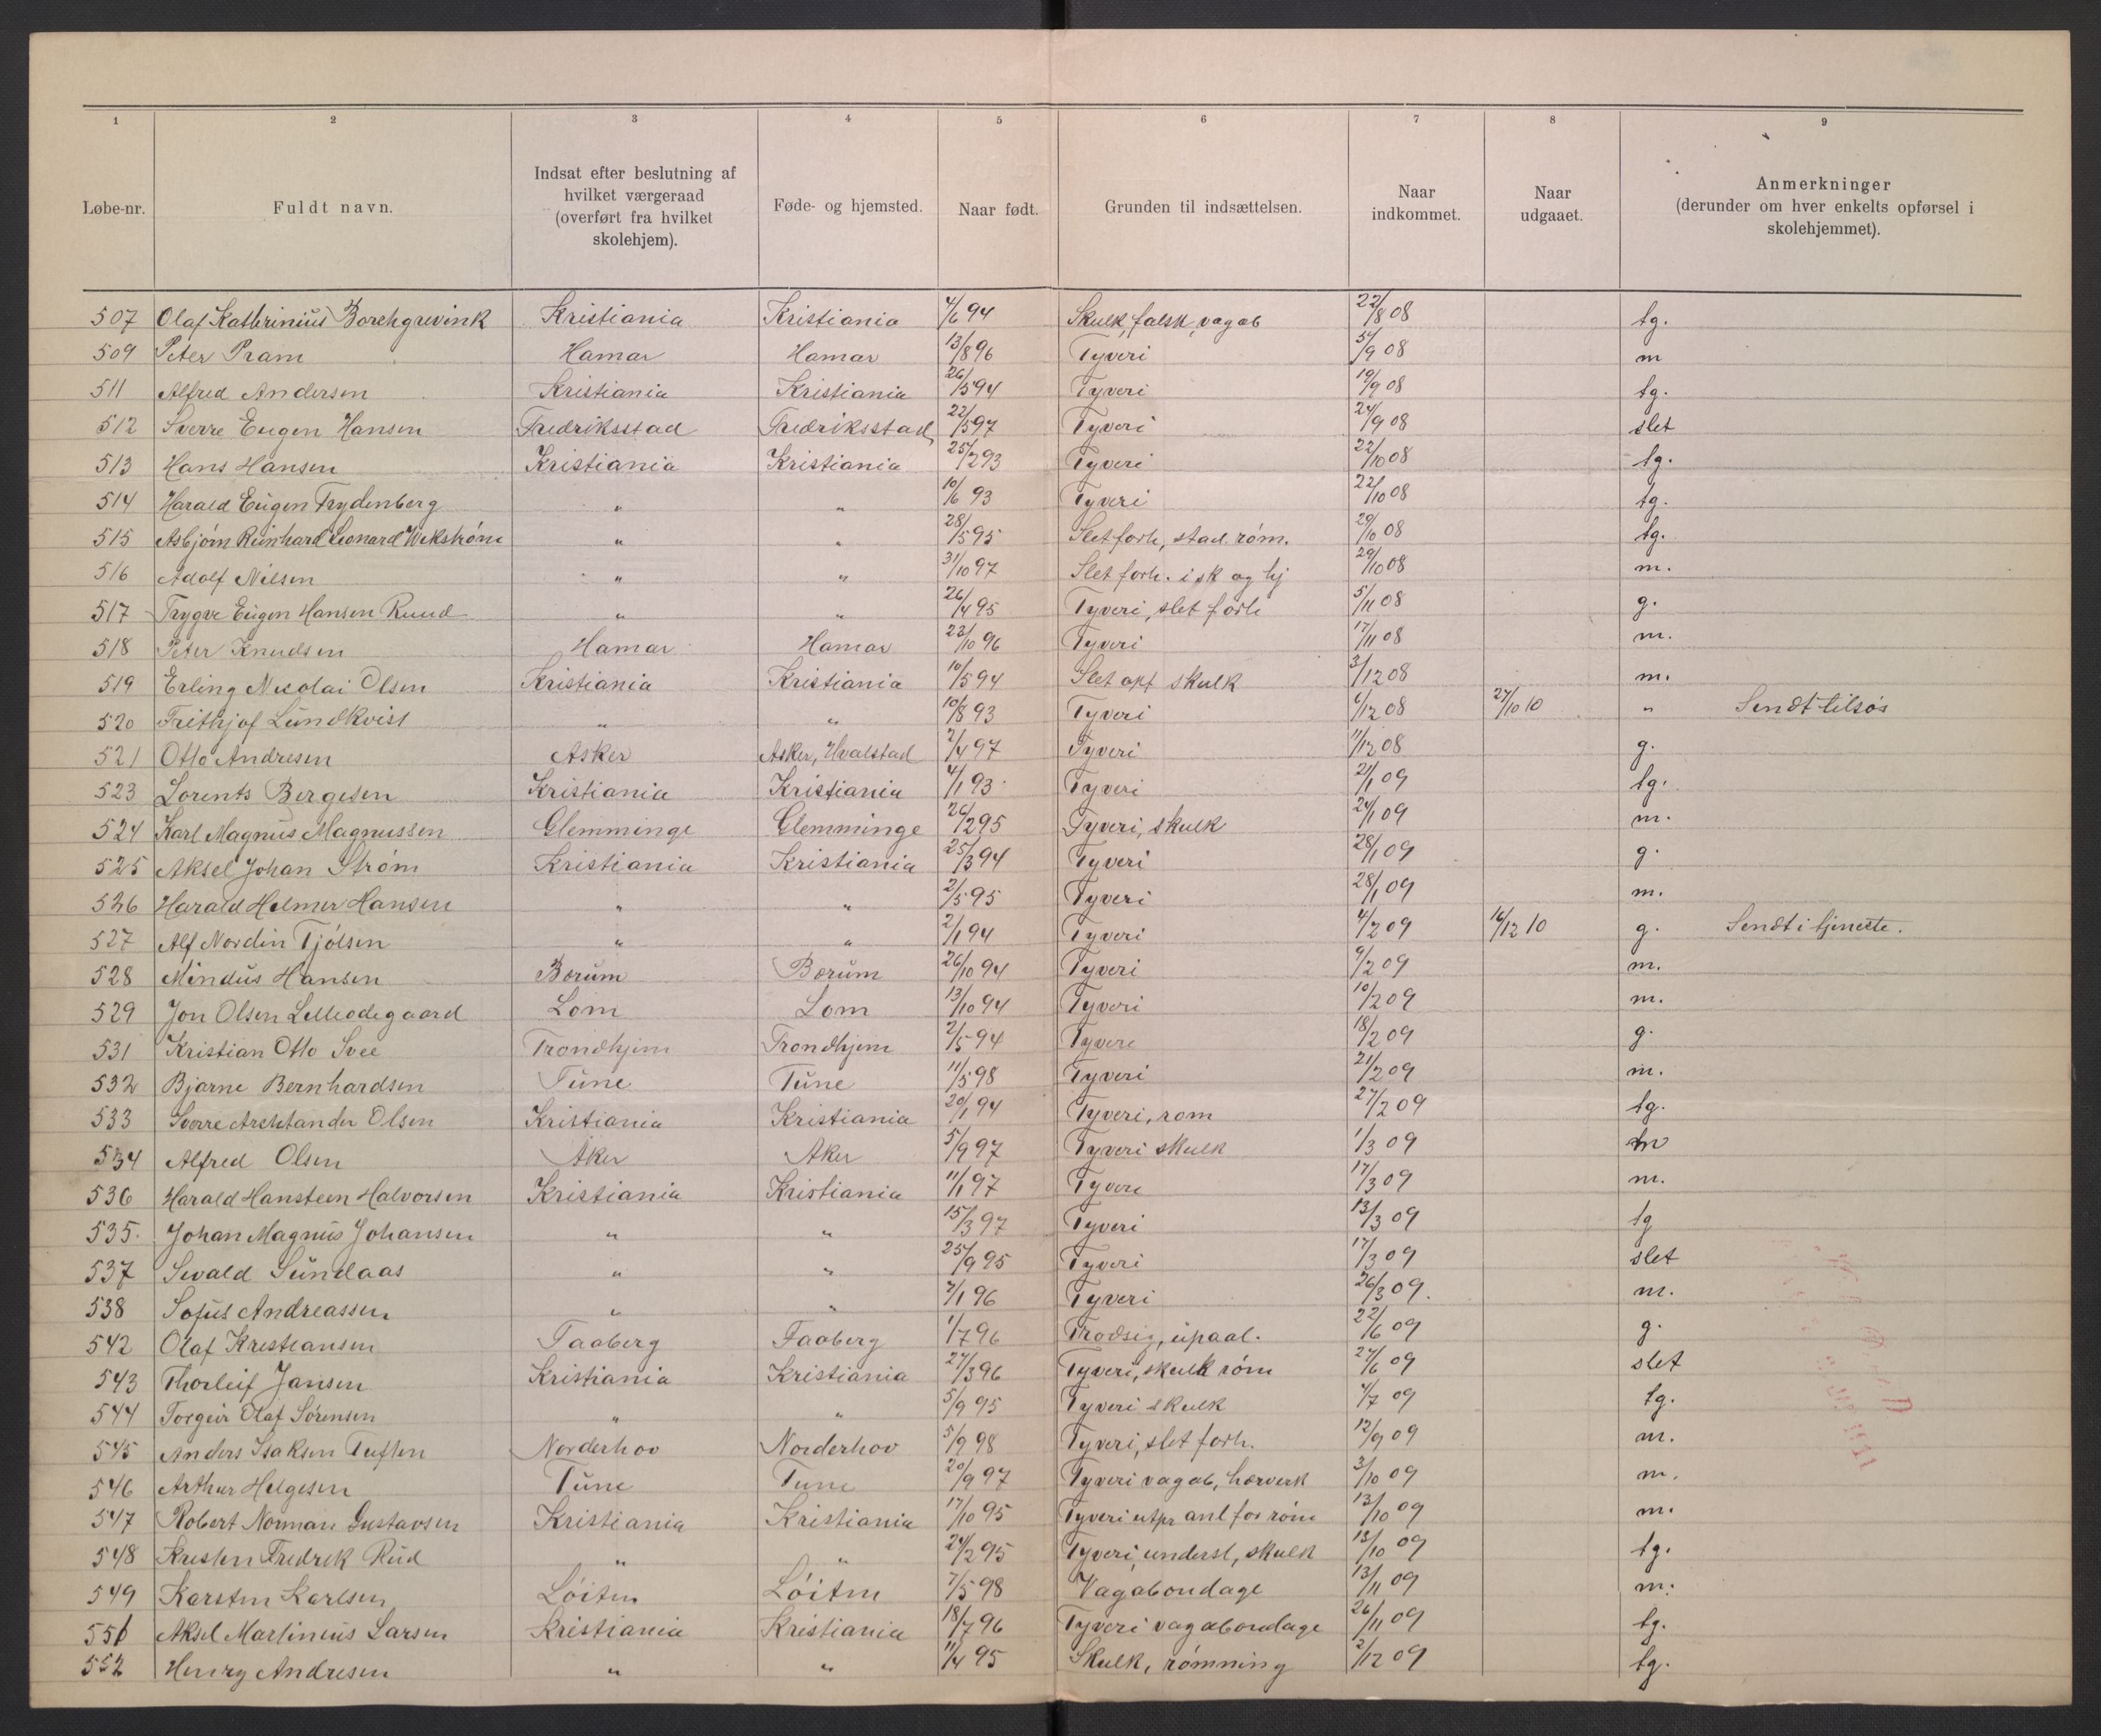 1 2 3 4 5 6 7 8 9
Løbe-nr. Fuldt navn. Indsat efter beslutning af hvilket værgeraad (overført fra hvilket skolehjem). Føde- og hjemsted. Naar født. Grunden til indsættelsen. Naar indkommet. Naar udgaaet. Anmerkninger (derunder om hver enkelts opførsel i skolehjemmet).
507 Olaf Kathrinius Borchgrevink Kristiania Kristiania 4/6 94 Skulk, falsk, vagab 22/8 08 tg.
509 Peter Pram Hamar Hamar 13/8 96 Tyveri 5/9 08 m
511 Alfred Andersen Kristiania Kristiania 26/5 94 Tyveri 19/9 08 tg.
512 Sverre Eugen Hansen Fredriksstad Fredriksstad 22/5 97 Tyveri 24/9 08 slet
513 Hans Hansen Kristiania Kristiania 25/2 93 Tyveri 22/10 08 tg.
514 Harald Eugen Frydenberg " " 10/6 93 Tyveri 22/10 08 tg.
515 Asbjørn Reinhard Leonard Wekstrøm " " 28/5 95 Slet forh, stad. røm. 29/10 08 tg.
516 Adolf Nilsen " " 31/10 97 Slet forh. i sk og hj 29/10 08 m.
517 Trygve Eugen Hansen Ruud " " 26/4 95 Tyveri, slet forh 5/11 08 g.
518 Peter Knudsen Hamar Hamar 23/10 96 Tyveri 17/11 08 m.
519 Erling Nicolai Olsen Kristiania Kristiania 10/5 94 Slet opf skulk 3/12 08 m.
520 Frithjof Lundkvist " " 10/8 93 Tyveri 6/12 08 27/10 10 " Sendt tilsøs
521 Otto Andresen Asker Asker, Hvalstad 2/4 97 Tyveri 11/12 08 g.
523 Lorents Bergesen Kristiania Kristiania 4/1 93 Tyveri 21/1 09 tg.
524 Karl Magnus Magnussen Glemminge Glemminge 26/2 95 Tyveri, skulk 24/1 09 m.
525 Aksel Johan Strøm Kristiania Kristiania 25/3 94 Tyveri 28/1 09 g.
526 Harald Helmer Hansen " " 2/5 95 Tyveri 28/1 09 m.
527 Alf Nordin Tjølsen " " 2/1 94 Tyveri 4/2 09 16/12 10 g. Sendt i tjeneste.
528 Mindus Hansen Bærum Bærum 26/10 94 Tyveri 9/2 09 m.
529 Jon Olsen Lelleodegaard Lom Lom 13/10 94 Tyveri 10/2 09 m.
531 Kristian Otto Svee Trondhjem Trondhjem 2/5 94 Tyveri 18/2 09 g.
532 Bjarne Bernhardsen Tune Tune 11/5 98 Tyveri 21/2 09 m.
533 Sverre Olsen Kristiania Kristiania 20/1 94 Tyveri, røm 27/2 09 tg.
534 Alfred Olsen Aker Aker 5/9 97 Tyveri skulk 1/3 09 m
536 Harald Hansteen Halvorsen Kristiania Kristiania 11/1 97 Tyveri 17/3 09 m.
535. Johan Magnus Johansen " " 15/3 97 Tyveri 13/3 09 tg
537 Sevald Sundaas " " 25/9 95 Tyveri 17/3 09 slet
538 Sofus Andreassen " " 2/1 96 Tyveri 26/3 09. m.
542 Olaf Kristiansen Faaberg Faaberg 1/7 96 Trodsig, upaal. 22/6 09 g.
543 Thorleif Jansen Kristiania Kristiania 27/3 96 Tyveri, skulk røm 27/6 09 slet
544 Torgeir Olaf Sørensen " " 5/9 95 Tyveri skulk 4/7 09 tg.
545 Anders Isaksen Tuften Norderhov Norderhov 5/9 98 Tyveri, slet forh. 12/9 09 m.
546 Arthur Helgesen Tune Tune 20/9 97 Tyveri vagab, hærverk 3/10 09 m.
547 Robert Norman Gustavsen Kristiania Kristiania 17/10 95 Tyveri utpr anl for røm 13/10 09 m.
548 Kristen Fredrek Rud " " 24/2 95 Tyveri, underst, skulk 13/10 09 tg.
549 Karsten Karlsen Løiten Løiten 7/5 98 Vagabondage 13/11 09 m.
551 Aksel Martinius Larsen Kristiania Kristiania 18/7 96 Tyveri vagabondage 26/11 09 tg.
552 Henry Andresen " " 11/4 95 Skulk, rømning 2/12 09 tg.